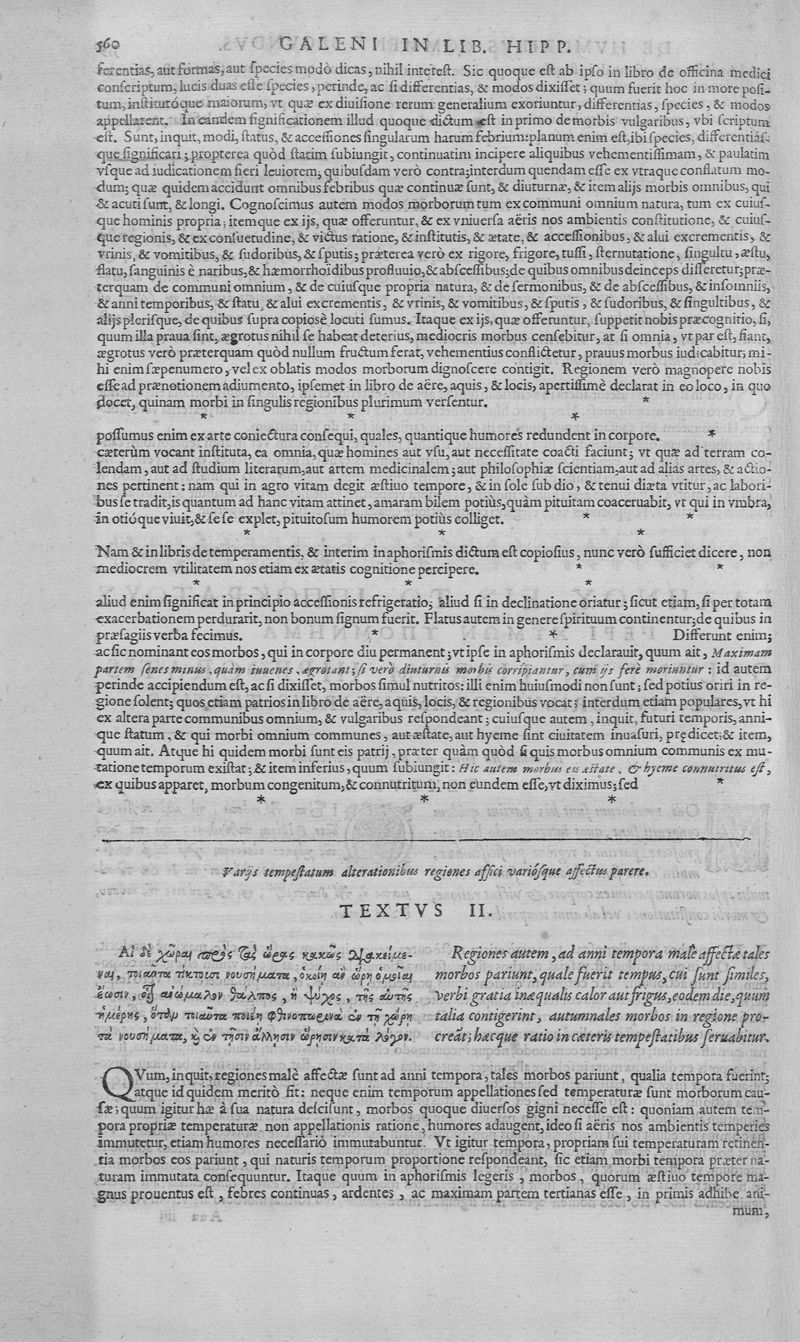 560 GALENI IN LIB. HIPP.
ferentias, aut formas, aut ſpecies modò dicas, nihil intereſt. Sic quoque eſt ab ipſo in libro de officina medici
conſcriptum, lucis duas eſſe ſpecies, perinde, ac ſi differentias, & modos dixiſſet; quum fuerit hoc in more poſi-
tum, inſtitutóque maiorum, vt quæ ex diuiſione rerum generalium exoriuntur, differentias, ſpecies, & modos
appellarent. In eandem ſignificationem illud quoque dictum eſt in primo de morbis vulgaribus, vbi ſcriptum
eſt. Sunt, inquit, modi, ſtatus, & acceſſiones ſingularum harum febrium: planum enim eſt, ibi ſpecies, differentiáſ-
que ſignificari; propterea quòd ſtatim ſubiungit, continuatim incipere aliquibus vehementiſſimam, & paulatim
vſque ad iudicationem fieri leuiorem, quibuſdam verò contra; interdum quendam eſſe ex vtraque conflatum mo-
dum; quæ quidem accidunt omnibus febribus quæ continuæ ſunt, & diuturnæ, & item alijs morbis omnibus, qui
& acuti ſunt, & longi. Cognoſcimus autem modos morborum tum ex communi omnium natura, tum ex cuiuſ-
que hominis propria; itemque ex ijs, quæ offeruntur, & ex vniuerſa aëris nos ambientis conſtitutione, & cuiuſ-
que regionis, & ex conſuetudine, & victus ratione, & inſtitutis, & ætate, & acceſſionibus, & alui excrementis, &
vrinis, & vomitibus, & ſudoribus, & ſputis; præterea verò ex rigore, frigore, tuſſi, ſternutatione, ſingultu, æſtu,
flatu, ſanguinis è naribus, & hæmorrhoidibus profluuio, & abſceſſibus; de quibus omnibus deinceps differetur; præ-
terquam de communi omnium, & de cuiuſque propria natura, & de ſermonibus, & de abſceſſibus, & inſomniis,
& anni temporibus, & ſtatu, & alui excrementis, & vrinis, & vomitibus, & ſputis, & ſudoribus, & ſingultibus, &
alijs pleriſque, de quibus ſupra copiosè locuti ſumus. Itaque ex ijs, quæ offeruntur, ſuppetit nobis præcognitio, ſi,
quum illa praua ſint, ægrotus nihil ſe habeat deterius, mediocris morbus cenſebitur, at ſi omnia, vt par eſt, fiant,
ægrotus verò præterquam quòd nullum fructum ferat, vehementius conflictetur, prauus morbus iudicabitur; mi-
hi enim ſæpenumero, vel ex oblatis modos morborum dignoſcere contigit. Regionem verò magnopere nobis
eſſe ad prænotionem adiumento, ipſemet in libro de aëre, aquis, & locis, apertiſſimè declarat in eo loco, in quo
docet, quinam morbi in ſingulis regionibus plurimum verſentur. *
* * *
poſſumus enim ex arte coniectura conſequi, quales, quantique humores redundent in corpore. *
cæterùm vocant inſtituta, ea omnia, quæ homines aut vſu, aut neceſſitate coacti faciunt; vt quæ ad terram co-
lendam, aut ad ſtudium literarum, aut artem medicinalem; aut philoſophiæ ſcientiam, aut ad alias artes, & actio-
nes pertinent: nam qui in agro vitam degit æſtiuo tempore, & in ſole ſub dio, & tenui diæta vtitur, ac labori-
bus ſe tradit, is quantum ad hanc vitam attinet, amaram bilem potiùs, quàm pituitam coaceruabit, vt qui in vmbra,
in otióque viuit, & ſeſe explet, pituitoſum humorem potiùs colliget. * *
* * *
Nam & in libris de temperamentis, & interim in aphoriſmis dictum eſt copioſius, nunc verò ſufficiet dicere, non
mediocrem vtilitatem nos etiam ex ætatis cognitione percipere. * *
* * *
aliud enim ſignificat in principio acceſſionis refrigeratio; aliud ſi in declinatione oriatur; ſicut etiam, ſi per totam
exacerbationem perdurarit, non bonum ſignum fuerit. Flatus autem in genere ſpirituum continentur; de quibus in
præſagiis verba fecimus. * * Differunt enim;
ac ſic nominant eos morbos, qui in corpore diu permanent; vt ipſe in aphoriſmis declarauit, quum ait, Maximam
partem ſenes minus, quàm iuuenes, ægrotant; ſi verò diuturnis morbis corripiantur, cum ijs ferè moriuntur: id autem
perinde accipiendum eſt, ac ſi dixiſſet, morbos ſimul nutritos: illi enim huiuſmodi non ſunt; ſed potius oriri in re-
gione ſolent; quos etiam patrios in libro de aëre, aquis, locis, & regionibus vocat; interdum etiam populares, vt hi
ex altera parte communibus omnium, & vulgaribus reſpondeant; cuiuſque autem, inquit, futuri temporis, anni-
que ſtatum, & qui morbi omnium communes, aut æſtate, aut hyeme ſint ciuitatem inuaſuri, prędicet; & item,
quum ait. Atque hi quidem morbi ſunt eis patrij, præter quàm quòd ſi quis morbus omnium communis ex mu-
tatione temporum exiſtat; & item inferius, quum ſubiungit: Hic autem morbus eis æſtate, & hyeme connutritus eſt,
ex quibus apparet, morbum congenitum, & connutritum, non eundem eſſe, vt diximus; ſed *
* * *
Varijs tempeſtatum alterationibus regiones affici varióſque affectus parere.
TEXTVS II.
Αἱ δὲ χῶραι πρὸς τὰς ὥρας κακῶς διακείμε-
ναι, τοιαῦτα τίκτουσι νουσήματα, ὁκοίη ἂν ὥρη ὁμοῖαι
ἔωσιν, οἷον ἀνώμαλον θάλπος, ἢ ψῦχος, τῆς αὐτῆς
ἡμέρης, ὅταν τοιαῦτα ποιέῃ φθινοπωρινὰ ἐν τῇ χώρῃ
τὰ νουσήματα, καὶ ἐν τῇσιν ἄλλῃσιν ὥρῃσιν κατὰ λόγον.
Regiones autem, ad anni tempora malè affectæ tales
morbos pariunt, quale fuerit tempus, cui ſunt ſimiles,
verbi gratia inæqualis calor aut frigus, eodem die, quum
talia contigerint, autumnales morbos in regione pro-
creat; hæcque ratio in cæteris tempeſtatibus ſeruabitur.
QVum, inquit, regiones malè affectæ ſunt ad anni tempora, tales morbos pariunt, qualia tempora fuerint;
atque id quidem meritò fit: neque enim temporum appellationes ſed temperaturæ ſunt morborum cau-
ſæ; quum igitur hæ à ſua natura deſciſunt, morbos quoque diuerſos gigni neceſſe eſt: quoniam autem tem-
pora propriæ temperaturæ non appellationis ratione, humores adaugent, ideo ſi aëris nos ambientis temperies
immutetur, etiam humores neceſſariò immutabuntur. Vt igitur tempora, propriam ſui temperaturam retinen-
tia morbos eos pariunt, qui naturis temporum proportione reſpondeant, ſic etiam morbi tempora præter na-
turam immutata conſequuntur. Itaque quum in aphoriſmis legeris, morbos, quorum æſtiuo tempore ma-
gnus prouentus eſt, febres continuas, ardentes, ac maximam partem tertianas eſſe, in primis adhibe ani-
mum,